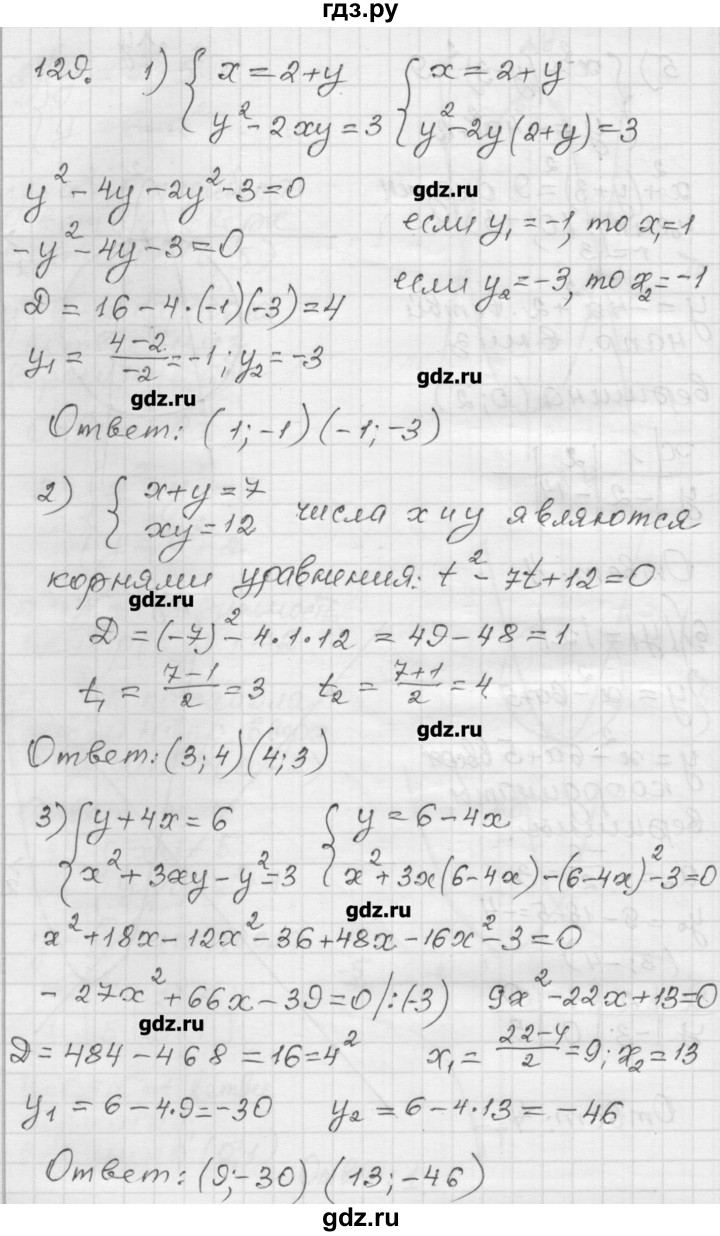 гдз.ру
129. 1) { x = 2 + y    { x = 2 + y
y² - 2xy = 3    y² - 2y(2+y) = 3
y² - 4y - 2y² - 3 = 0
gdz.ru
-y² - 4y - 3 = 0
если y₁ = -1, то x₁ = 1
D = 16 - 4·(-1)(-3) = 4
если y₂ = -3, то x₂ = -1
y₁ = (4-2)/(-2) = -1; y₂ = -3
gdz.ru
gdz.ru
Ответ: (1; -1) (-1; -3)
2) { x + y = 7
xy = 12    числа x и y являются
корнями уравнения: t² - 7t + 12 = 0
gdz.ru
D = (-7)² - 4·1·12 = 49 - 48 = 1
t₁ = (7-1)/2 = 3    t₂ = (7+1)/2 = 4
gdz.ru
Ответ: (3; 4) (4; 3)
3) { y + 4x = 6    { y = 6 - 4x
x² + 3xy - y² = 3    x² + 3x(6-4x) - (6-4x)² - 3 = 0
gdz.ru
x² + 18x - 12x² - 36 + 48x - 16x² - 3 = 0
-27x² + 66x - 39 = 0 /:(-3)    9x² - 22x + 13 = 0
gdz.ru
D = 484 - 468 = 16 = 4²    x₁ = (22-4)/2 = 9; x₂ = 13
y₁ = 6 - 4·9 = -30    y₂ = 6 - 4·13 = -46
Ответ: (9; -30) (13; -46)
gdz.ru